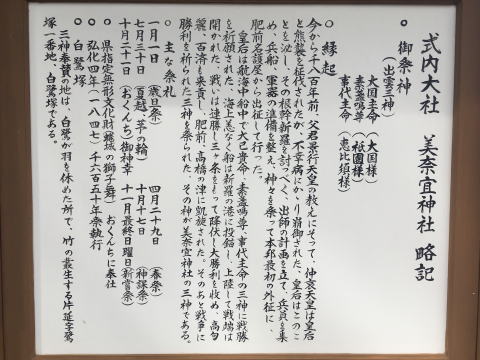 式内大社 美奈宜神社 略記
◎ 御祭神
(出雲三神)
大国主命 (大国様)
素盞鳴尊 (祇園様)
事代主命 (恵比須様)
◎ 縁起
今から千八百年前、父君景行天皇の教えにそって、仲哀天皇は皇后
と熊襲を征伐されたが、不幸病にかゝり崩御された、皇后はこのこ
とを泌し、その根幹新羅を討つべく、出師の計画を立て、兵員を集
め、兵船、軍器の準備を整え、神々を祭って本邦最初の外征に、
肥前名護屋から出征して行った。
皇后は航海中船中で大己貴命、素盞鳴尊、事代主命の三神に戦勝
を祈願された、海上恙なく船は新羅の港に投錨し、上陸して戦端は
開かれた、戦いは連勝し三ヶ条をもって降伏し大勝利を收め、高句
麗、百済も来貢し、肥前、高橋の津に凱旋された。そのあと戦争に
勝利を祈られた三神を祭られた、その神が美奈宜神社の三神である。
◎ 主な祭礼
一月一日 (歳旦祭) 四月二十九日 (春祭)
七月三十日 (夏越、茅の輪) 十月十七日 (神課祭)
十月二十一日 (おくんち)御神幸 十一月最終日曜日(新嘗祭)
◎ 県指定無形文化財(蜷城の獅子舞) おくんちに奉仕
◎ 弘化四年(一八四七) 千六百五十年祭執行
◎ 白鷺塚
三神奉賛の地は、白鷺が羽を休めた所で、竹の叢生する片延字鷺
塚一番地、白鷺塚である。